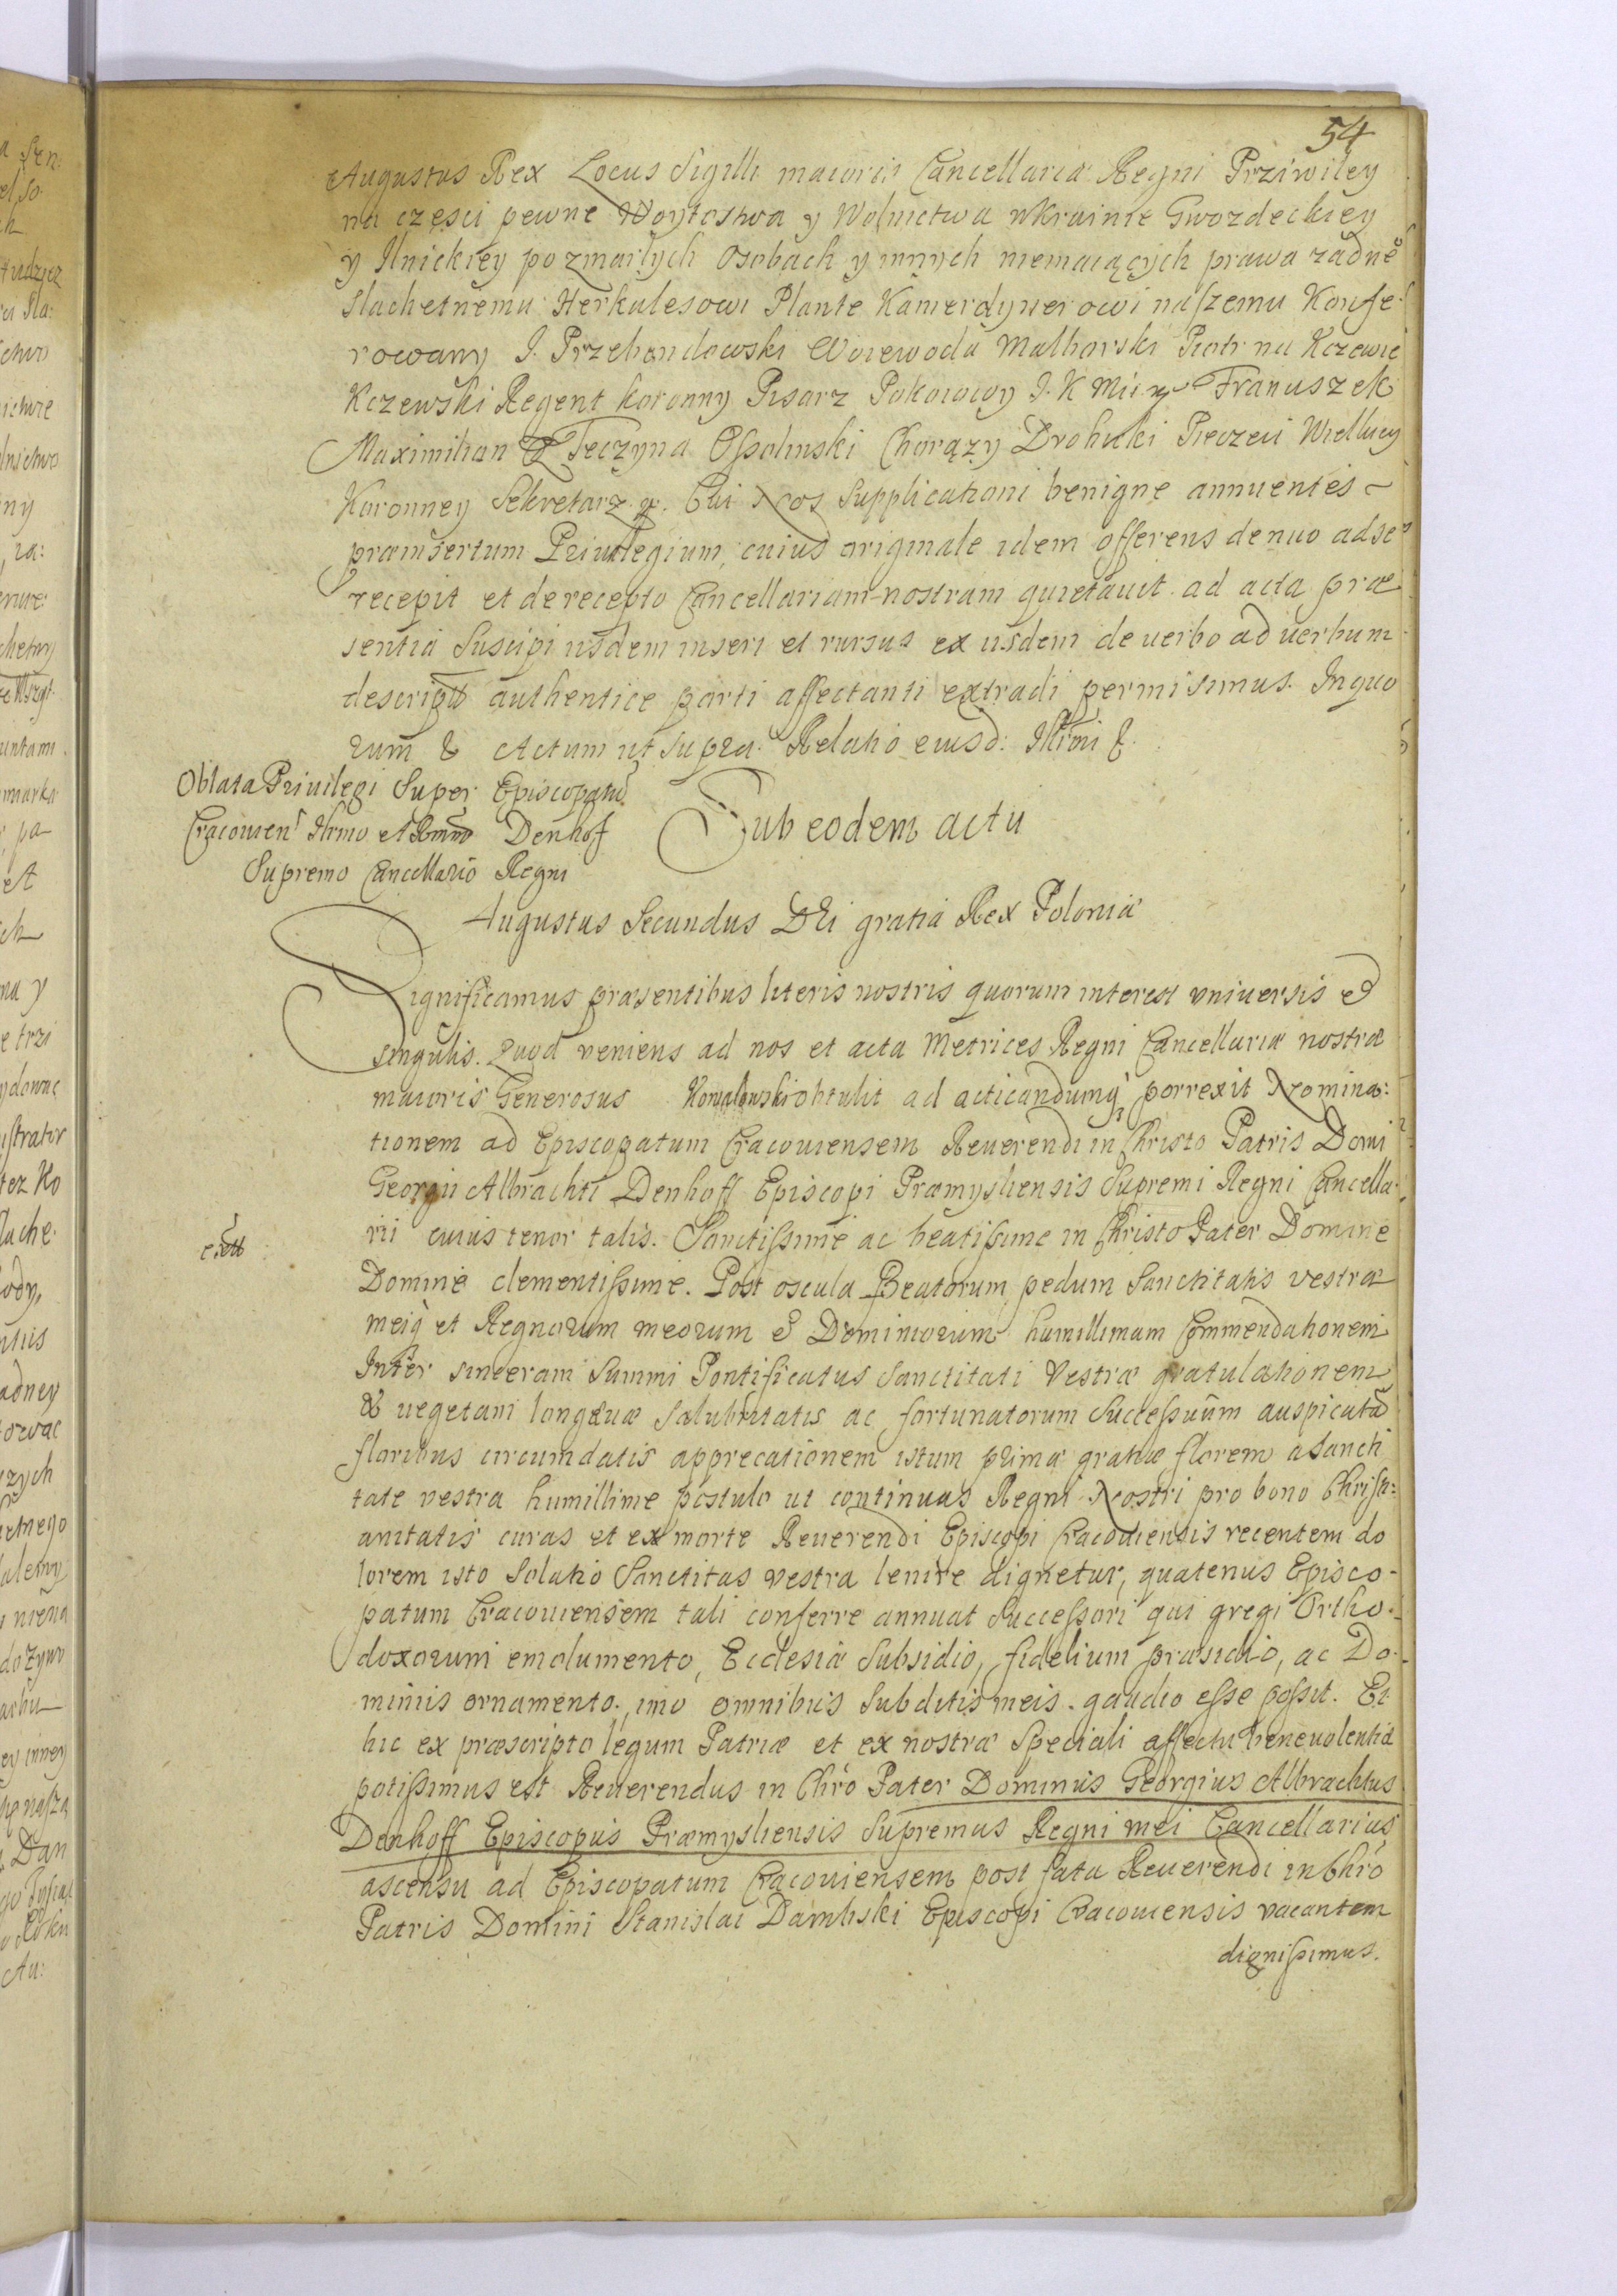 54
Augustus Rex Locus Sigilli maioris Cancellariæ Regni Przÿwiley
na częsci pewne Woytostwa y Wolnictwa wkrainie Gwozdeckiey
y Ilnickiey po zmarłych Osobach y innych niemaiących prawa zadne°
Slachetnemu Herkulesowi Plante Kamerdynerowi naszemu Konfe-
rowany J. Przebendowski Woiewoda Malborski Piotr na Kczewie
Kczewski Regent koronny Pisarz Pokoiowy J. K Mci Franuszek
Maximilian z Teczyna Ossolinski Chorązy Drohicki Pieczeci Wielkiey
Koronney Sekretarz. Cui Nos Supplicationi benigne annuentes
præinsertum Privilegium, cuius originale idem offerens denuo ad se
recepit et de recepto Cancellariam nostram quietauit. ad acta præ
sentia Suscipi iisdem inseri et rursus ex iisdem de uerbo ad uerbum
descriptū authentice parti affectanti extradi permisimus. In quo
rum & Actum ut supra. Relatio eiusd: Illmi &.
Oblata Priuilegi Super Episcopatū
Cracouien Illmo et Rmno Denhof
Supremo Cancellario Regni
Sub eodem actu
Augustus Secundus DEi gratiâ Rex Poloniæ
Significamus præsentibus literis nostris quorum interest vniuersis &
singulis. Quod veniens ad nos et acta Metrices Regni Cancellariæ nostræ
maioris Generosus Kowalewski obtulit ad acticandumq; porrexit Nomina:
tionem ad Episcopatum Cracouiensem Reuerendi in Christo Patris Domi
Georgii Albrachti Denhoff Episcopi Præmysliensis Supremi Regni Cancella-
rii cuius tenor talis. Sanctissime ac beatissime in Christo Pater Domine
Domine clementissime. Post oscula Beatorum pedum Sanctitatis vestræ
meiq; et Regnorum meorum & Dominiorum humillimam Commendationem
Inter sinceram Summi Pontificatus Sanctitati Vestræ gratulationem
& uegetam longæuæ Salubritatis ac fortunatorum Successuūm auspicatā
floribus circumdatis apprecationem istum primæ gratiæ florem a Sancti
tate vestra humillime postulo ut continuas Regni Nostri pro bono Christi:
anitatis curas et ex morte Reuerendi Episcopi Cracouiensis recentem do
lorem isto Solatio Sanctitas vestra lenire dignetur, quatenus Episco-
patum Cracouiensem tali conferre annuat Successori qui gregi Ortho-
doxorum emolumento, Ecclesiæ Subsidio, fidelium præsidio, ac Do-
miniis ornamento, imo omnibus Subditis meis gaudio esse possit. Et
hic ex præscripto legum Patriæ et ex nostræ Speciali affectu beneuolentiæ
potissimus est Reuerendus in Chro Pater Dominus Georgius Albrachtus
Denhoff Episcopus Præmysliensis Supremus Regni mei Cancellarius
ascensu ad Episcopatum Cracouiensem post fata Reuerendi in Chro
Patris Domini Stanislai Dambski Episcopi Cracouiensis vacantem
dignissimus.